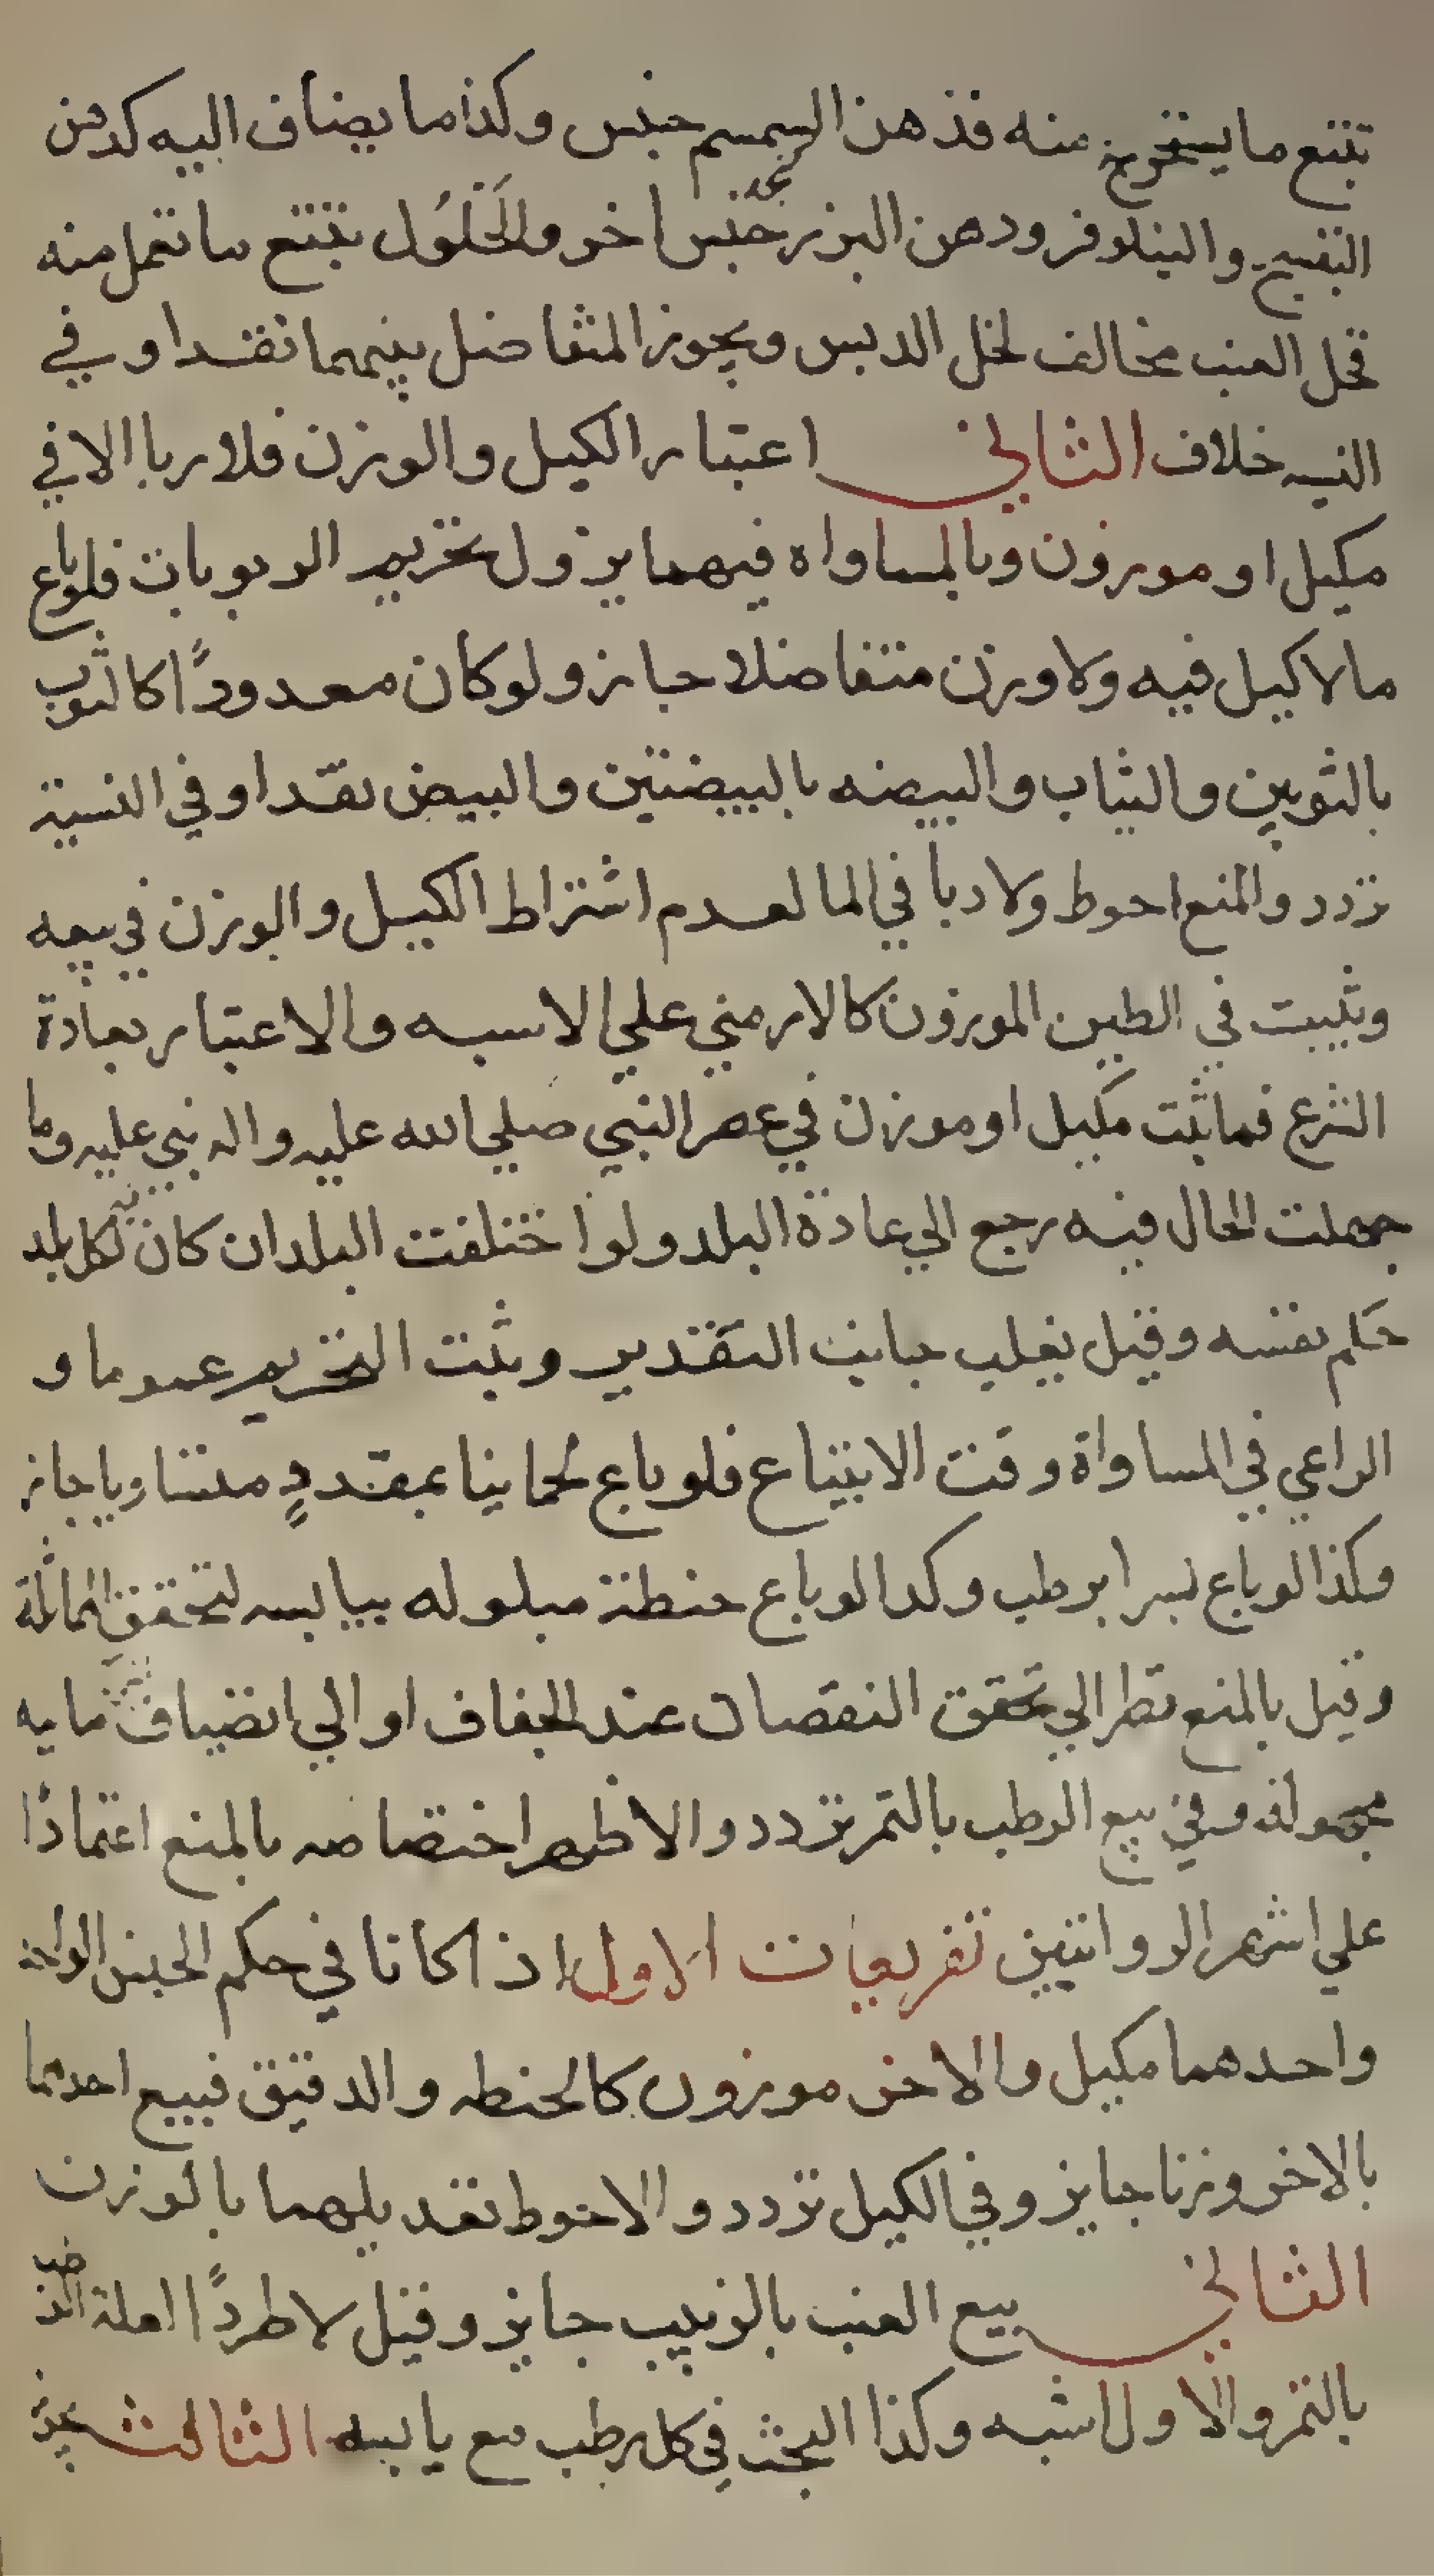 تتبع ما يستخرج منه فذهن السمسم جنس وكذا ما يضاف اليه كدهن
البنفسج والنيلوفر ودهن البزر جنس اخر والخَلُول تتبع ما تعمل منه
فخل العنب مخالف لخل الدبس ويجوز المتفاضل بينهما نقدا وفي
النسيه خلاف الثاني اعتبار الكيل والوزن فلا ربا الا في
مكيل او موزون وبالمساواه فيهما يزول تحريم الربوبات فلو باع
مالا كيل فيه ولا وزن متفاضلا جاز ولو كان معدودًا كالثوب
بالثوبين والثياب والبيضه بالبيضتين والبيض نقدا وفي النسية
تردد والمنع احوط ولا ربا في الما لعدم اشتراط الكيل والوزن في بيعه
ويثبت في الطين الموزون كالارمني علي الاشبه والاعتبار بعادة
الشرع فما ثبت مكيل او موزن في عصر النبي صلي الله عليه واله بني عليه وما
جهلت الحال فيه رجع الي عادة البلد ولو اختلفت البلدان كان لكل بلد
حكم نفسه وقيل يغلب جانب التقدير ويثبت التحريم عموما و
المراعي في المساواة وقت الابتياع فلو باع لحما نيا بمقددٍ متساويا جاز
وكذا لو باع بسرا برطب وكدا لو باع حنطة مبلوله بيابسه لتحقق المماثلة
وقيل بالمنع نظرا الي تحقق النقصان عند الجفاف او الي انضياف مايه
مجهولة وفي بيع الرطب بالتمر تردد والاظهر اختصاصه بالمنع اعتمادًا
علي اشهر الروايتين تفريعات الاول اذا كانا في حكم الجنس الواحد
واحدهما مكيل والاخر موزون كالحنطه والدقيق فبيع احدهما
بالاخر وزنا جايز وفي الكيل تردد والاحوط تعديلهما بالوزن
الثاني بيع العنب بالزبيب جايز وقيل لا طردًا لعلة الرطب
بالتمر والاول اشبه وكذا البحث في كل رطب مع يابسه الثالث يجوز